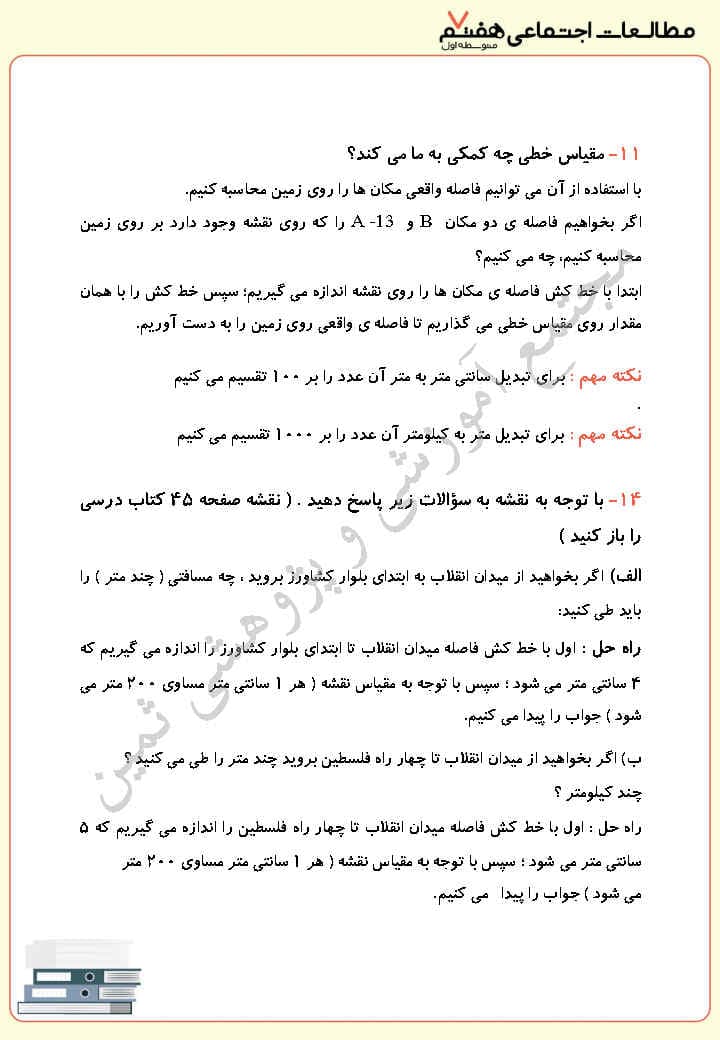 مطالعات اجتماعی هفتم ۷
متوسطه اول
۱۱- مقیاس خطی چه کمکی به ما می کند؟
با استفاده از آن می توانیم فاصله واقعی مکان ها را روی زمین محاسبه کنیم.
اگر بخواهیم فاصله ی دو مکان B و A -13 را که روی نقشه وجود دارد بر روی زمین
محاسبه کنیم، چه می کنیم؟
ابتدا با خط کش فاصله ی مکان ها را روی نقشه اندازه می گیریم؛ سپس خط کش را با همان
مقدار روی مقیاس خطی می گذاریم تا فاصله ی واقعی روی زمین را به دست آوریم.
نکته مهم : برای تبدیل سانتی متر به متر آن عدد را بر ۱۰۰ تقسیم می کنیم
.
نکته مهم : برای تبدیل متر به کیلومتر آن عدد را بر ۱۰۰۰ تقسیم می کنیم
۱۴- با توجه به نقشه به سؤالات زیر پاسخ دهید . ( نقشه صفحه ۴۵ کتاب درسی
را باز کنید )
الف) اگر بخواهید از میدان انقلاب به ابتدای بلوار کشاورز بروید ، چه مسافتی ( چند متر ) را
باید طی کنید:
راه حل : اول با خط کش فاصله میدان انقلاب تا ابتدای بلوار کشاورز را اندازه می گیریم که
۴ سانتی متر می شود ؛ سپس با توجه به مقیاس نقشه ( هر 1 سانتی متر مساوی ۲۰۰ متر می
شود ) جواب را پیدا می کنیم.
ب) اگر بخواهید از میدان انقلاب تا چهار راه فلسطین بروید چند متر را طی می کنید ؟
چند کیلومتر ؟
راه حل : اول با خط کش فاصله میدان انقلاب تا چهار راه فلسطین را اندازه می گیریم که ۵
سانتی متر می شود ؛ سپس با توجه به مقیاس نقشه ( هر 1 سانتی متر مساوی ۲۰۰ متر
می شود ) جواب را پیدا می کنیم.
مجتمع آموزشی و پژوهشی ثمین